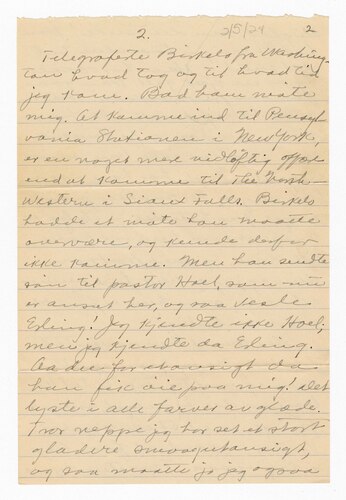 2.
2/5/24
2
Telegraferte Birkelo fra Washing-
ton hvad tog og til hvad tid
jeg kom. Bad ham møte
mig. At komme ind til Pennsyl-
vania Stationen i New York,
er en noget mer vidløftig affære
end at komme til The North-
western i Sioux Falls. Birkelo
hadde et møte han maatte
overvære, og kunde derfor
ikke komme. Men han sendte
søn til pastor Hoel, som nu
er ansat her, og saa vesle
Erling! Jeg kjendte ikke Hoel;
men jeg kjendte da Erling.
Aa die for et ansigt da
han fik øie paa mig! Det
lyste i alle farver av glæde.
Tror neppe jeg har set et stort
gladere smaagutansigt,
og saa maatte jo jeg ogsaa